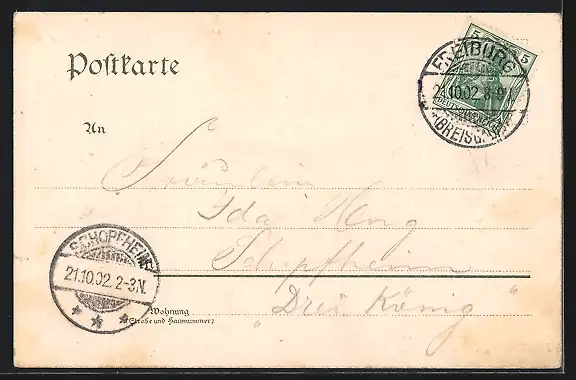 Postkarte
5 5
FREIBURG
21.10.02. 8-9
(BREISGAU)
An
Fräulein
Ida Heng
Schopfheim
SCHOPFHEIM
21.10.02. 2-3N.
Wohnung
(Straße und Hausnummer)
„Drei König"